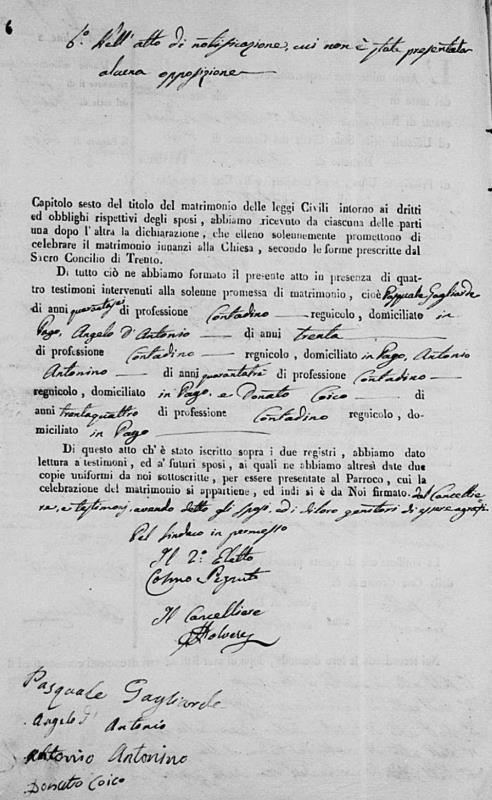 6
6.° Dell'atto di notificazione, cui non è stata presentata
alcuna opposizione
Capitolo sesto del titolo del matrimonio delle leggi Civili intorno ai dritti
ed obblighi rispettivi degli sposi, abbiamo ricevuto da ciascuna delle parti
una dopo l'altra la dichiarazione, che elleno solennemente promettono di
celebrare il matrimonio innanzi alla Chiesa, secondo le forme prescritte dal
Sacro Concilio di Trento.
Di tutto ciò ne abbiamo formato il presente atto in presenza di quat-
tro testimoni intervenuti alla solenne promessa di matrimonio, cioè Pasquale Gagliarde
di anni quarantasei di professione Contadino regnicolo, domiciliato in
Pago, Angelo d'Antonio di anni trenta
di professione Contadino regnicolo, domiciliato in Pago, Antonio
Antonino di anni quarantatre di professione Contadino
regnicolo, domiciliato in Pago, e Donato Coico di
anni trentaquattro di professione Contadino regnicolo, do-
miciliato in Pago
Di questo atto ch'è stato iscritto sopra i due registri, abbiamo dato
lettura a' testimoni, ed a' futuri sposi, ai quali ne abbiamo altresì date due
copie uniformi da noi sottoscritte, per essere presentate al Parroco, cui la
celebrazione del matrimonio si appartiene, ed indi si è da Noi firmato, dal Cancellie-
re, e testimonj, avendo detto gli sposi, ed i di loro genitori di essere
Pel Sindaco in permesso
Il 2.° Eletto
Il Cancelliere
Pasquale Gagliarde
Angelo d'Antonio
Antonio Antonino
Donato Coico